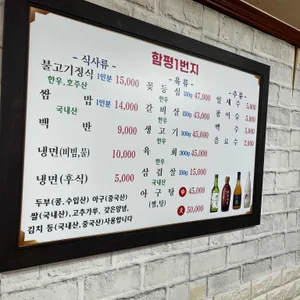 함평1번지
- 식사류 -
불고기정식 1인분 15,000
한우, 호주산
쌈 밥 1인분 14,000
국내산
백 반 9,000
냉면(비빔,물) 10,000
냉면(후식) 5,000
두부(콩,수입산) 아구(중국산)
쌀(국내산),고추가루, 갖은양념,
김치 등(국내산,중국산)사용합니다
- 육류 -
꽃 등 심 150g 47,000
한우
갈 비 살 150g 43,000
한우
생 고 기 300g 45,000
한우
육 회 300g 45,000
한우
삼 겹 살 150g 15,000
국내산
아 구 탕 中 45,000
(찜,탕)
大 50,000
- 주류 -